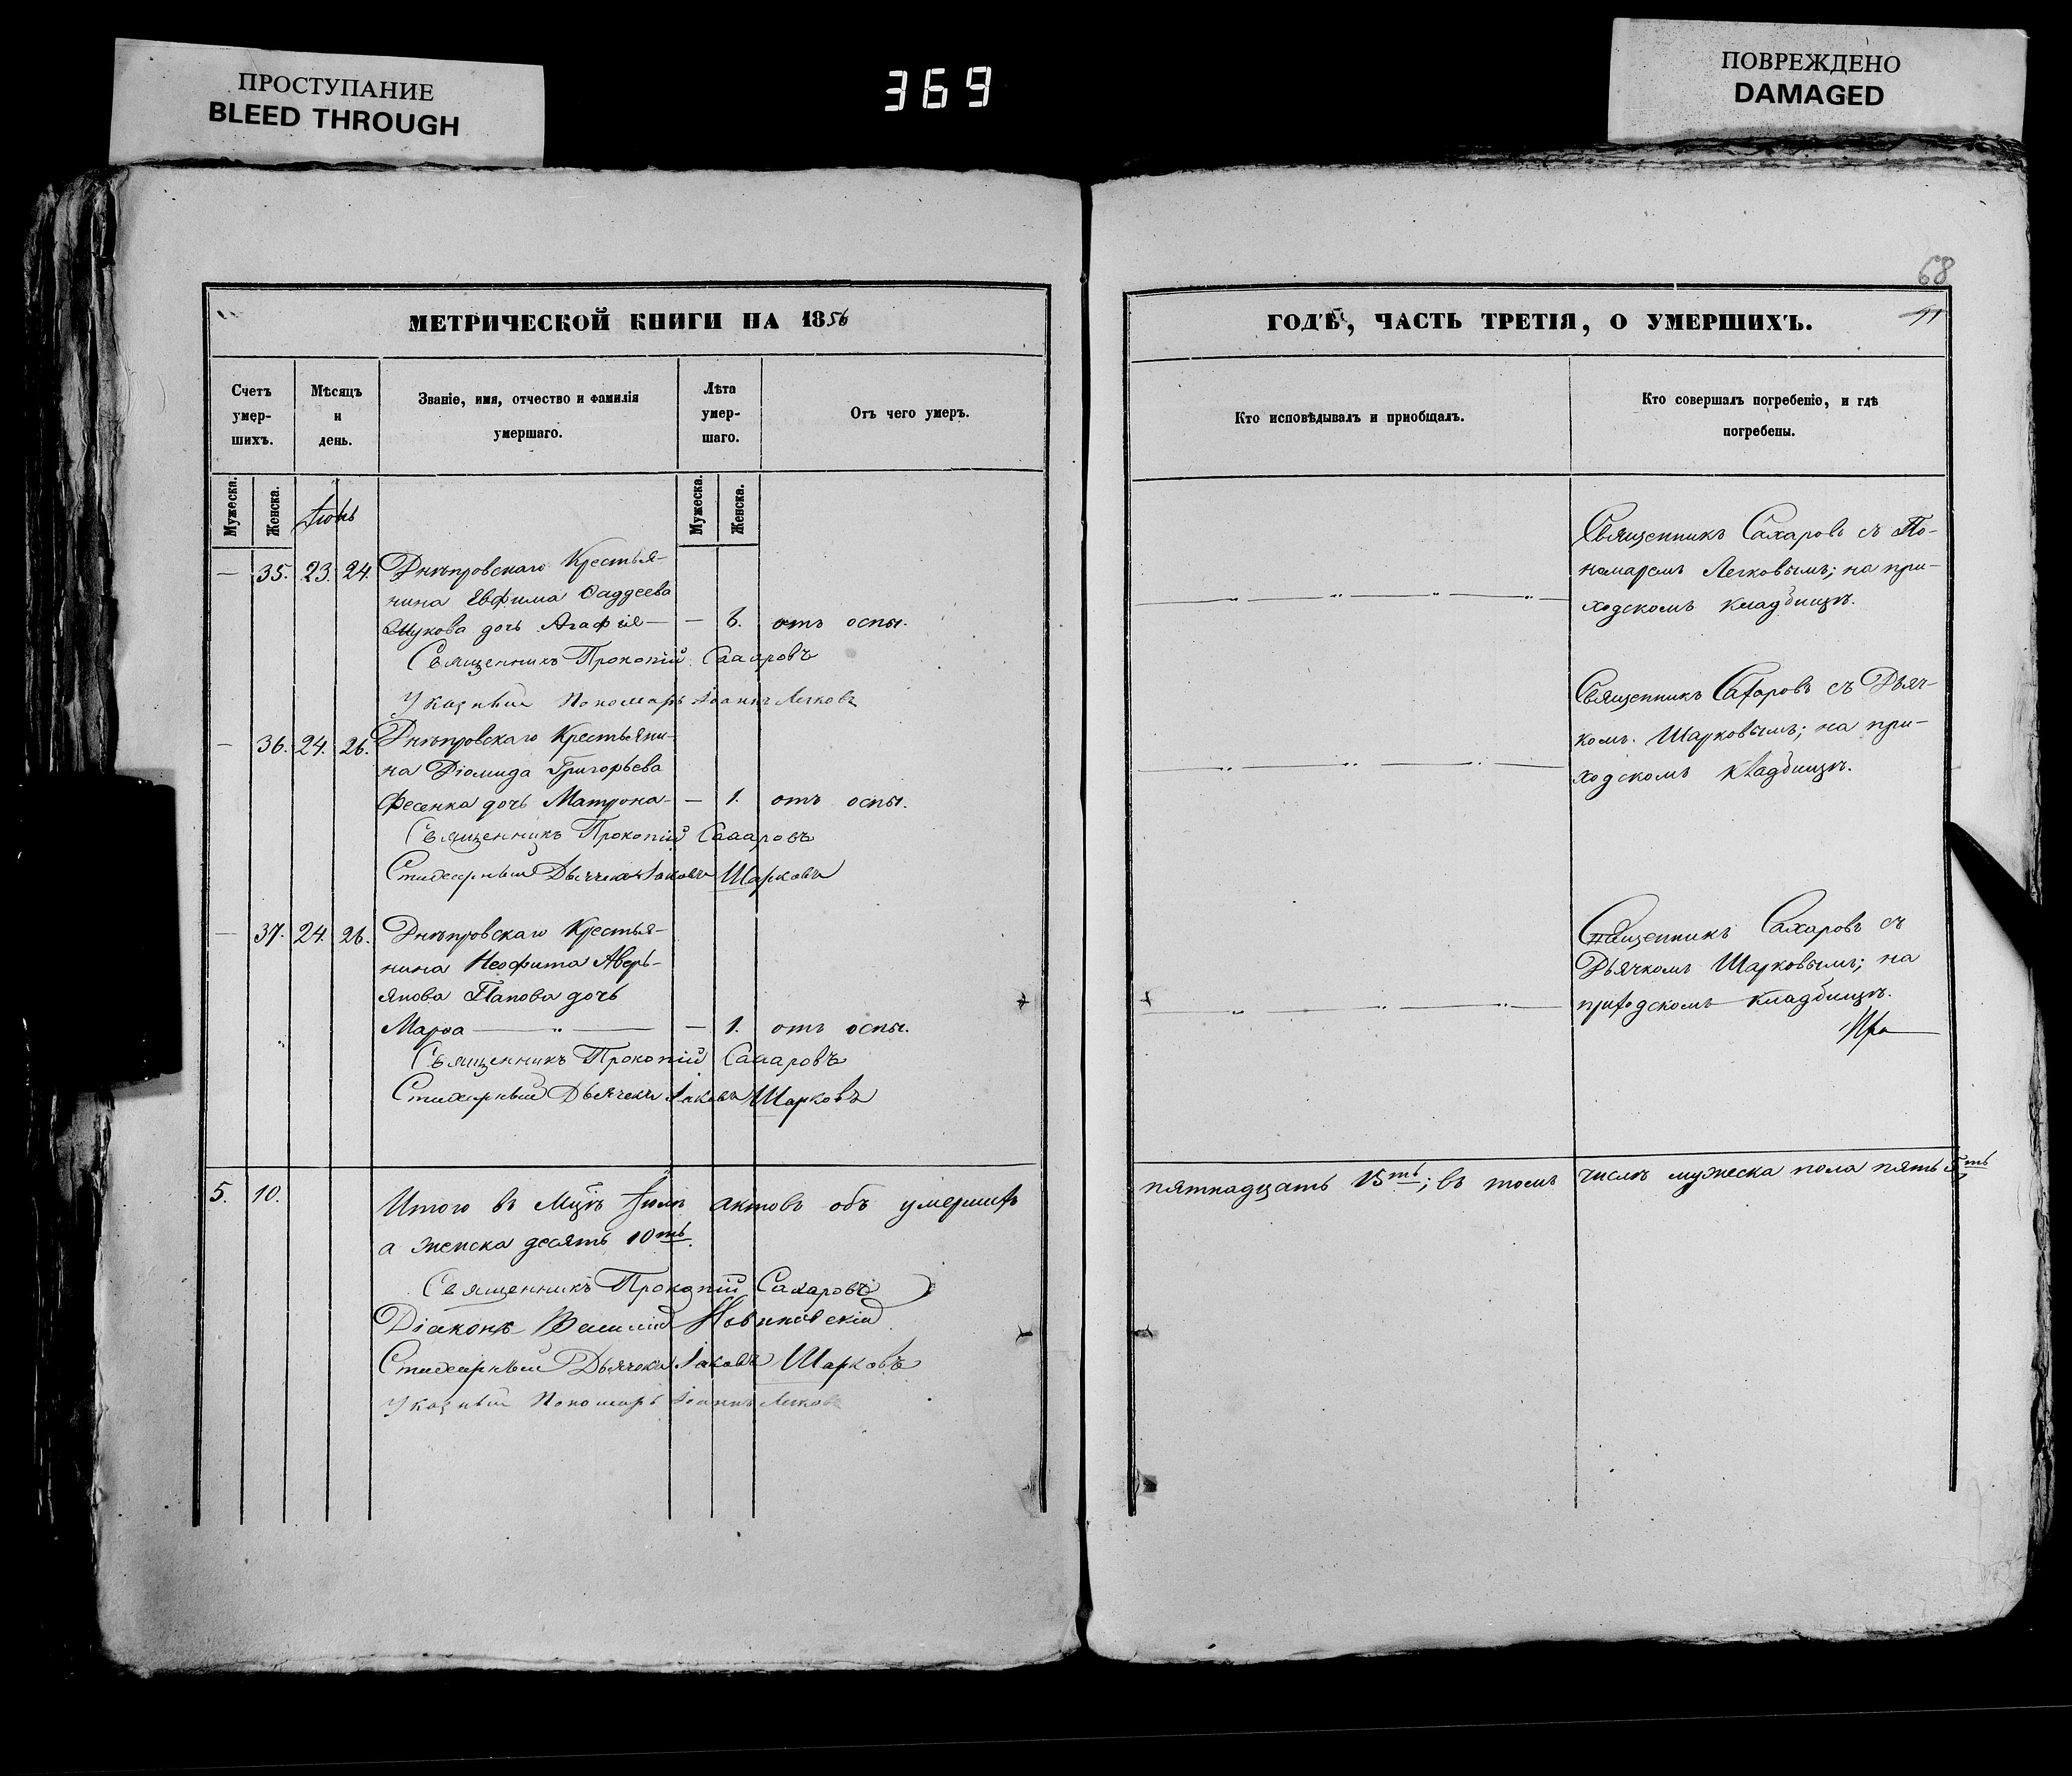 ПРОСТУПАНИЕ
BLEED THROUGH
369
ПОВРЕЖДЕНО
DAMAGED
МЕТРИЧЕСКОЙ КНИГИ НА 1856
Счетъ
умер-
шихъ.
Мѣсяцъ
и
день.
Званіе, имя, отчество и фамилія
умершаго.
Лѣта
умер-
шаго.
Отъ чего умеръ.
Мужеска.
Женска.
Мужеска.
Женска.
— 35. 23. 24. Днѣпровскаго Крестья-
нина Евфима Ѳаддеева
дочь Агафія — — 6. отъ оспы.
Священникъ Прокопій Сахаровъ
Указный Пономарь Іоаннъ Легковъ
— 36. 24. 26. Днѣпровскаго Крестьяни-
на Діомида Григорьева
Фесенка дочь Матрона — — 1. отъ оспы.
Священникъ Прокопій Сахаровъ
Стихарный Дьячекъ Іаковъ Шарковъ
— 37. 24. 26. Днѣпровскаго Крестья-
нина Неофита Аверь-
янова Папова дочь
Марѳа — „ — — 1. отъ оспы.
Священникъ Прокопій Сахаровъ
Стихарный Дьячекъ Іаковъ Шарковъ
5. 10. Итого въ Мцѣ актовъ объ умершихъ
а женска десять 10ть.
Священникъ Прокопій Сахаровъ
Діаконъ Василій Новицкій
Стихарный Дьячекъ Іаковъ Шарковъ
Указный Пономарь Іоаннъ Легковъ
68
ГОДЪ, ЧАСТЬ ТРЕТІЯ, О УМЕРШИХЪ.
Кто исповѣдывалъ и пріобщалъ.
Кто совершалъ погребеніе, и гдѣ
погребены.
Священникъ Сахаровъ съ По-
номаремъ Легковымъ; на при-
ходскомъ кладбищѣ.
Священникъ Сахаровъ съ Дьяч-
комъ Шарковымъ; на при-
ходскомъ кладбищѣ.
Священникъ Сахаровъ съ
Дьячкомъ Шарковымъ; на
приходскомъ кладбищѣ.
пятнадцать 15ть; въ томъ числѣ мужеска пола пять 5ть